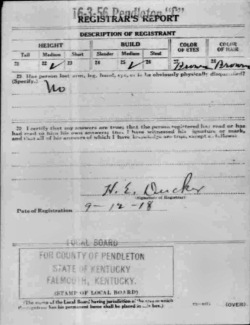 16-3-56 Pendleton "P"
REGISTRAR'S REPORT
DESCRIPTION OF REGISTRANT
HEIGHT BUILD COLOR OF EYES COLOR OF HAIR
Tall Medium Short Slender Medium Stout
21 22 ✓ 23 24 25 ✓ 26 27 Brown 28 Brown
29 Has person lost arm, leg, hand, eye, or is he obviously physically disqualified?
(Specify.) No
30 I certify that my answers are true; that the person registered has read or has
had read to him his own answers; that I have witnessed his signature or mark,
and that all of his answers of which I have knowledge are true, except as follows:
H. E. Ducker
(Signature of Registrar)
Date of Registration 9-12-18
LOCAL BOARD
FOR COUNTY OF PENDLETON
STATE OF KENTUCKY
FALMOUTH, KENTUCKY.
(STAMP OF LOCAL BOARD)
(The stamp of the Local Board having jurisdiction of the area in which
the registrant has his permanent home shall be placed in this box.)